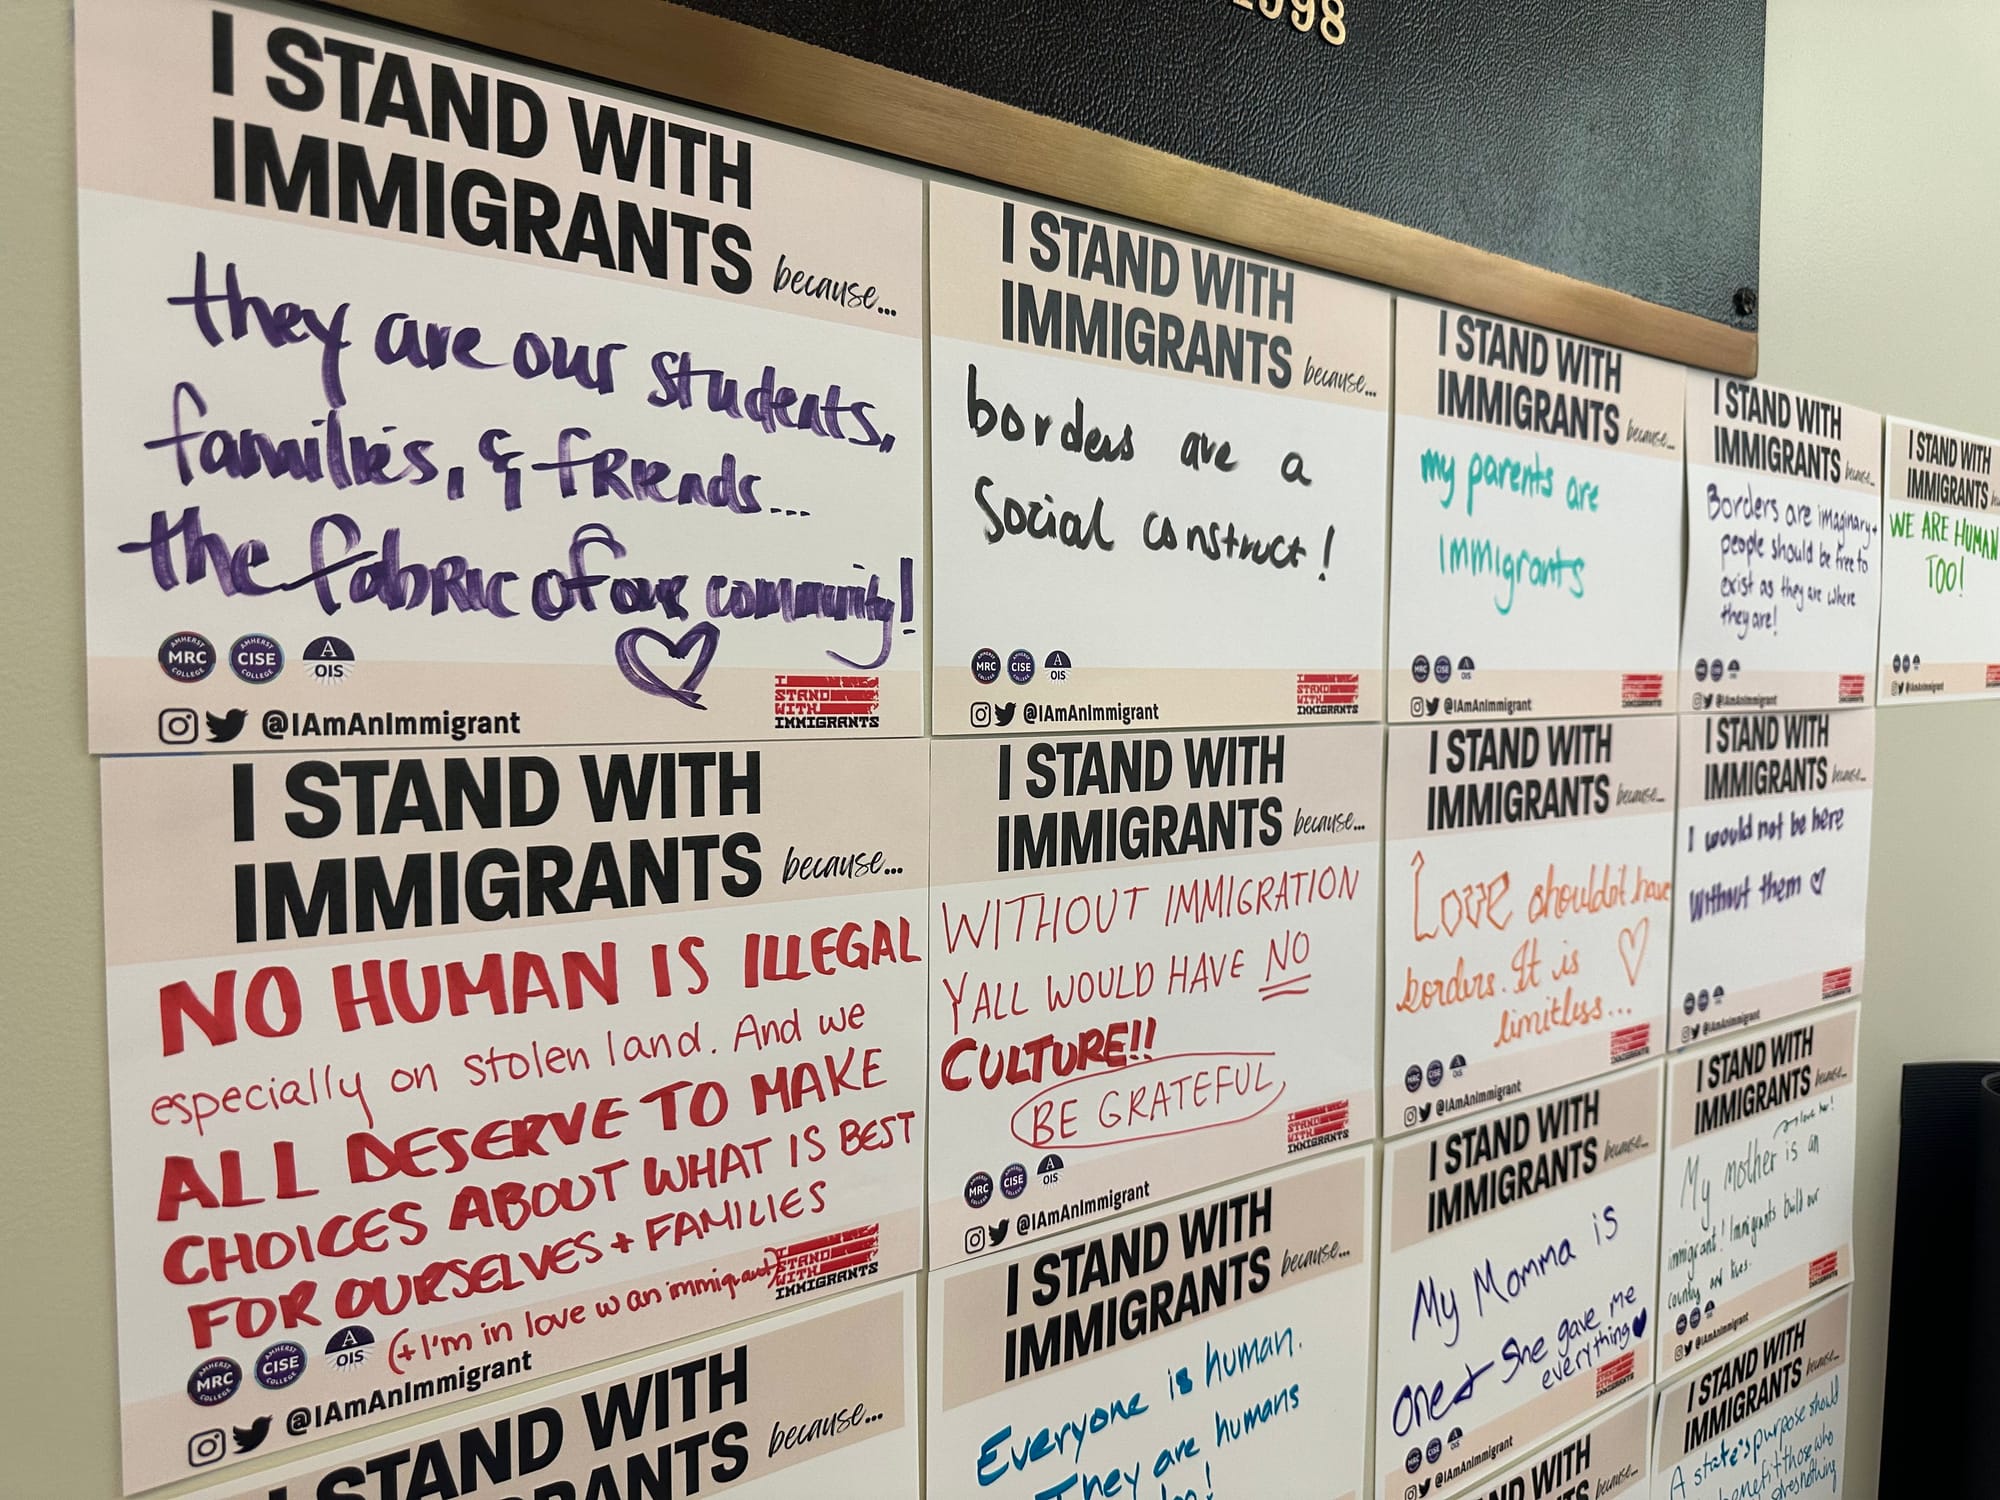 1998
I STAND WITH
IMMIGRANTS because...
they are our students,
families, & friends...
the fabric of our community!
AMHERST MRC COLLEGE
AMHERST CISE COLLEGE
A OIS
@IAmAnImmigrant
I STAND WITH IMMIGRANTS
I STAND WITH
IMMIGRANTS because...
borders are a
Social construct!
MRC CISE A OIS
@IAmAnImmigrant
I STAND WITH IMMIGRANTS
I STAND WITH
IMMIGRANTS because...
my parents are
immigrants
@IAmAnImmigrant
I STAND WITH
IMMIGRANTS because...
Borders are imaginary +
people should be free to
exist as they are where
they are!
@IAmAnImmigrant
I STAND WITH
IMMIGRANTS
WE ARE HUMAN
TOO!
@IAmAnImmigrant
I STAND WITH
IMMIGRANTS because...
NO HUMAN IS ILLEGAL
especially on stolen land. And we
ALL DESERVE TO MAKE
CHOICES ABOUT WHAT IS BEST
FOR OURSELVES + FAMILIES
(+ I'm in love w an immigrant)
AMHERST MRC COLLEGE
AMHERST CISE COLLEGE
A OIS
@IAmAnImmigrant
I STAND WITH IMMIGRANTS
I STAND WITH
IMMIGRANTS because...
WITHOUT IMMIGRATION
YALL WOULD HAVE NO
CULTURE!!
BE GRATEFUL
MRC CISE A OIS
@IAmAnImmigrant
I STAND WITH IMMIGRANTS
I STAND WITH
IMMIGRANTS because...
Love shouldn't have
borders. It is
limitless...
@IAmAnImmigrant
I STAND WITH
IMMIGRANTS because...
I would not be here
without them
@IAmAnImmigrant
I STAND WITH
IMMIGRANTS because...
Everyone is human.
They are humans
I STAND WITH
IMMIGRANTS because...
My Momma is
one + She gave me
everything
@IAmAnImmigrant
I STAND WITH
IMMIGRANTS because...
love her!
My mother is an
immigrant! Immigrants build our
country and lives.
@IAmAnImmigrant
STAND WITH
RANTS because...
ND WITH
because...
I STAND WITH
IMMIGRANTS because...
A state's purpose should
benefit those who